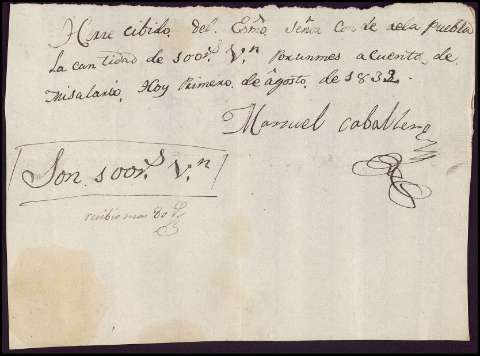 He rre cibido del Exmo Señor Co de de la puebla
la cantidad de 500 rs Vn Por un mes a cuenta de
mi salario, Hoy Primero de agosto de 1832.
Manuel caballero
Son 500 rs Vn